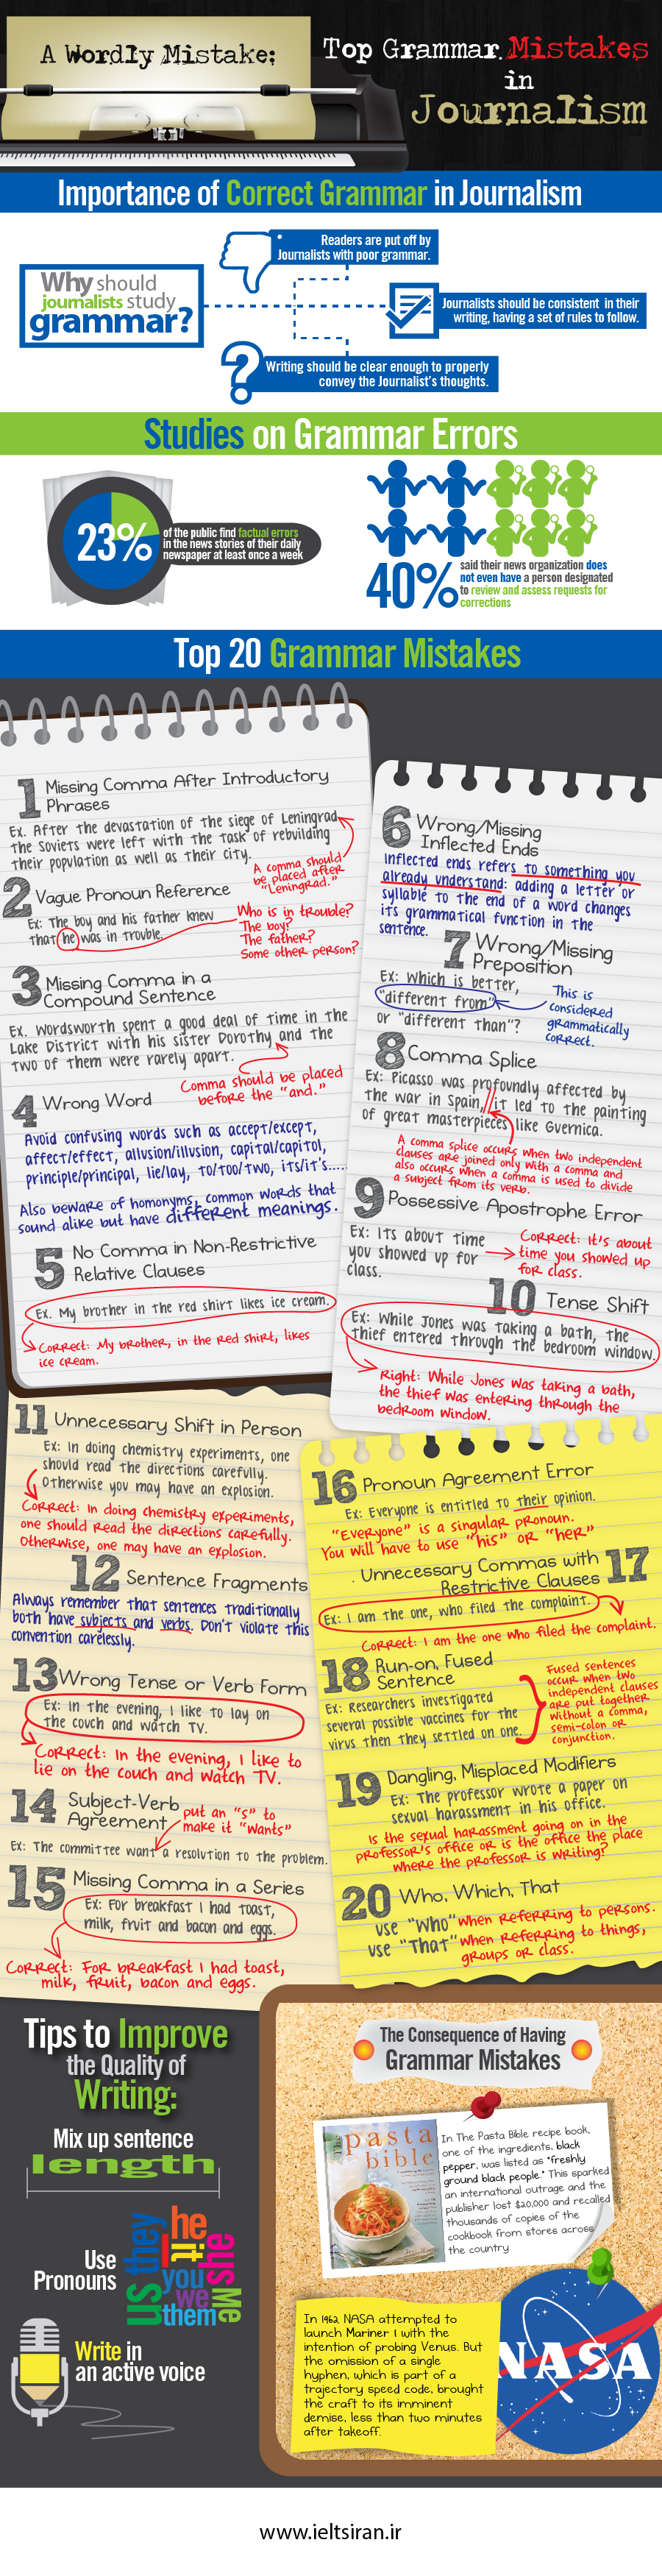 A Wordly Mistake:
Top Grammar Mistakes
in
Journalism
Importance of Correct Grammar in Journalism
Why should
journalists study
grammar?
Readers are put off by
Journalists with poor grammar.
Journalists should be consistent in their
writing, having a set of rules to follow.
Writing should be clear enough to properly
convey the Journalist's thoughts.
Studies on Grammar Errors
23%
of the public find factual errors
in the news stories of their daily
newspaper at least once a week
40%
said their news organization does
not even have a person designated
to review and assess requests for
corrections
Top 20 Grammar Mistakes
1 Missing Comma After Introductory
Phrases
Ex. After the devastation of the siege of Leningrad
the Soviets were left with the task of rebuilding
their population as well as their city.
A comma should
be placed after
"Leningrad."
2 Vague Pronoun Reference
Ex: The boy and his father knew
that he was in trouble.
Who is in trouble?
The boy?
The father?
Some other person?
3 Missing Comma in a
Compound Sentence
Ex. Wordsworth spent a good deal of time in the
Lake District with his sister Dorothy and the
two of them were rarely apart.
Comma should be placed
before the "and."
4 Wrong Word
Avoid confusing words such as accept/except,
affect/effect, allusion/illusion, capital/capitol,
principle/principal, lie/lay, to/too/two, its/it's.....
Also beware of homonyms, common words that
sound alike but have different meanings.
5 No Comma in Non-Restrictive
Relative Clauses
Ex. My brother in the red shirt likes ice cream.
Correct: My brother, in the red shirt, likes
ice cream.
6 Wrong/Missing
Inflected Ends
Inflected ends refers to something you
already understand: adding a letter or
syllable to the end of a word changes
its grammatical function in the
sentence.
7 Wrong/Missing
Preposition
Ex: Which is better,
"different from"
or "different than"?
This is
considered
grammatically
correct.
8 Comma Splice
Ex: Picasso was profoundly affected by
the war in Spain, it led to the painting
of great masterpieces like Guernica.
A comma splice occurs when two independent
clauses are joined only with a comma and
also occurs when a comma is used to divide
a subject from its verb.
9 Possessive Apostrophe Error
Ex: Its about time
you showed up for
class.
Correct: It's about
time you showed up
for class.
10 Tense Shift
Ex: While Jones was taking a bath, the
thief entered through the bedroom window.
Right: While Jones was taking a bath,
the thief was entering through the
bedroom window.
11 Unnecessary Shift in Person
Ex: In doing chemistry experiments, one
should read the directions carefully.
Otherwise you may have an explosion.
Correct: In doing chemistry experiments,
one should read the directions carefully.
Otherwise, one may have an explosion.
12 Sentence Fragments
Always remember that sentences traditionally
both have subjects and verbs. Don't violate this
convention carelessly.
13 Wrong Tense or Verb Form
Ex: In the evening, I like to lay on
the couch and watch TV.
Correct: In the evening, I like to
lie on the couch and watch TV.
14 Subject-Verb
Agreement
put an "s" to
make it "wants"
Ex: The committee want a resolution to the problem.
15 Missing Comma in a Series
Ex: For breakfast I had toast,
milk, fruit and bacon and eggs.
Correct: For breakfast I had toast,
milk, fruit, bacon and eggs.
16 Pronoun Agreement Error
Ex: Everyone is entitled to their opinion.
"Everyone" is a singular pronoun.
You will have to use "his" or "her"
Unnecessary Commas with 17
Restrictive Clauses
Ex: I am the one, who filed the complaint.
Correct: I am the one who filed the complaint.
18 Run-on, Fused
Sentence
Ex: Researchers investigated
several possible vaccines for the
virus then they settled on one.
Fused sentences
occur when two
independent clauses
are put together
without a comma,
semi-colon or
conjunction.
19 Dangling, Misplaced Modifiers
Ex: The professor wrote a paper on
sexual harassment in his office.
Is the sexual harassment going on in the
professor's office or is the office the place
where the professor is writing?
20 Who, Which, That
use "Who" when referring to persons.
use "That" when referring to things,
groups or class.
Tips to Improve
the Quality of
Writing:
Mix up sentence
length
Use
Pronouns
they
he
it
she
you
us
we
me
them
Write in
an active voice
The Consequence of Having
Grammar Mistakes
the
pasta
bible
In The Pasta Bible recipe book,
one of the ingredients, black
pepper, was listed as "freshly
ground black people." This sparked
an international outrage and the
publisher lost $20,000 and recalled
thousands of copies of the
cookbook from stores across
the country
In 1962, NASA attempted to
launch Mariner 1 with the
intention of probing Venus. But
the omission of a single
hyphen, which is part of a
trajectory speed code, brought
the craft to its imminent
demise, less than two minutes
after takeoff.
NASA
www.ieltsiran.ir